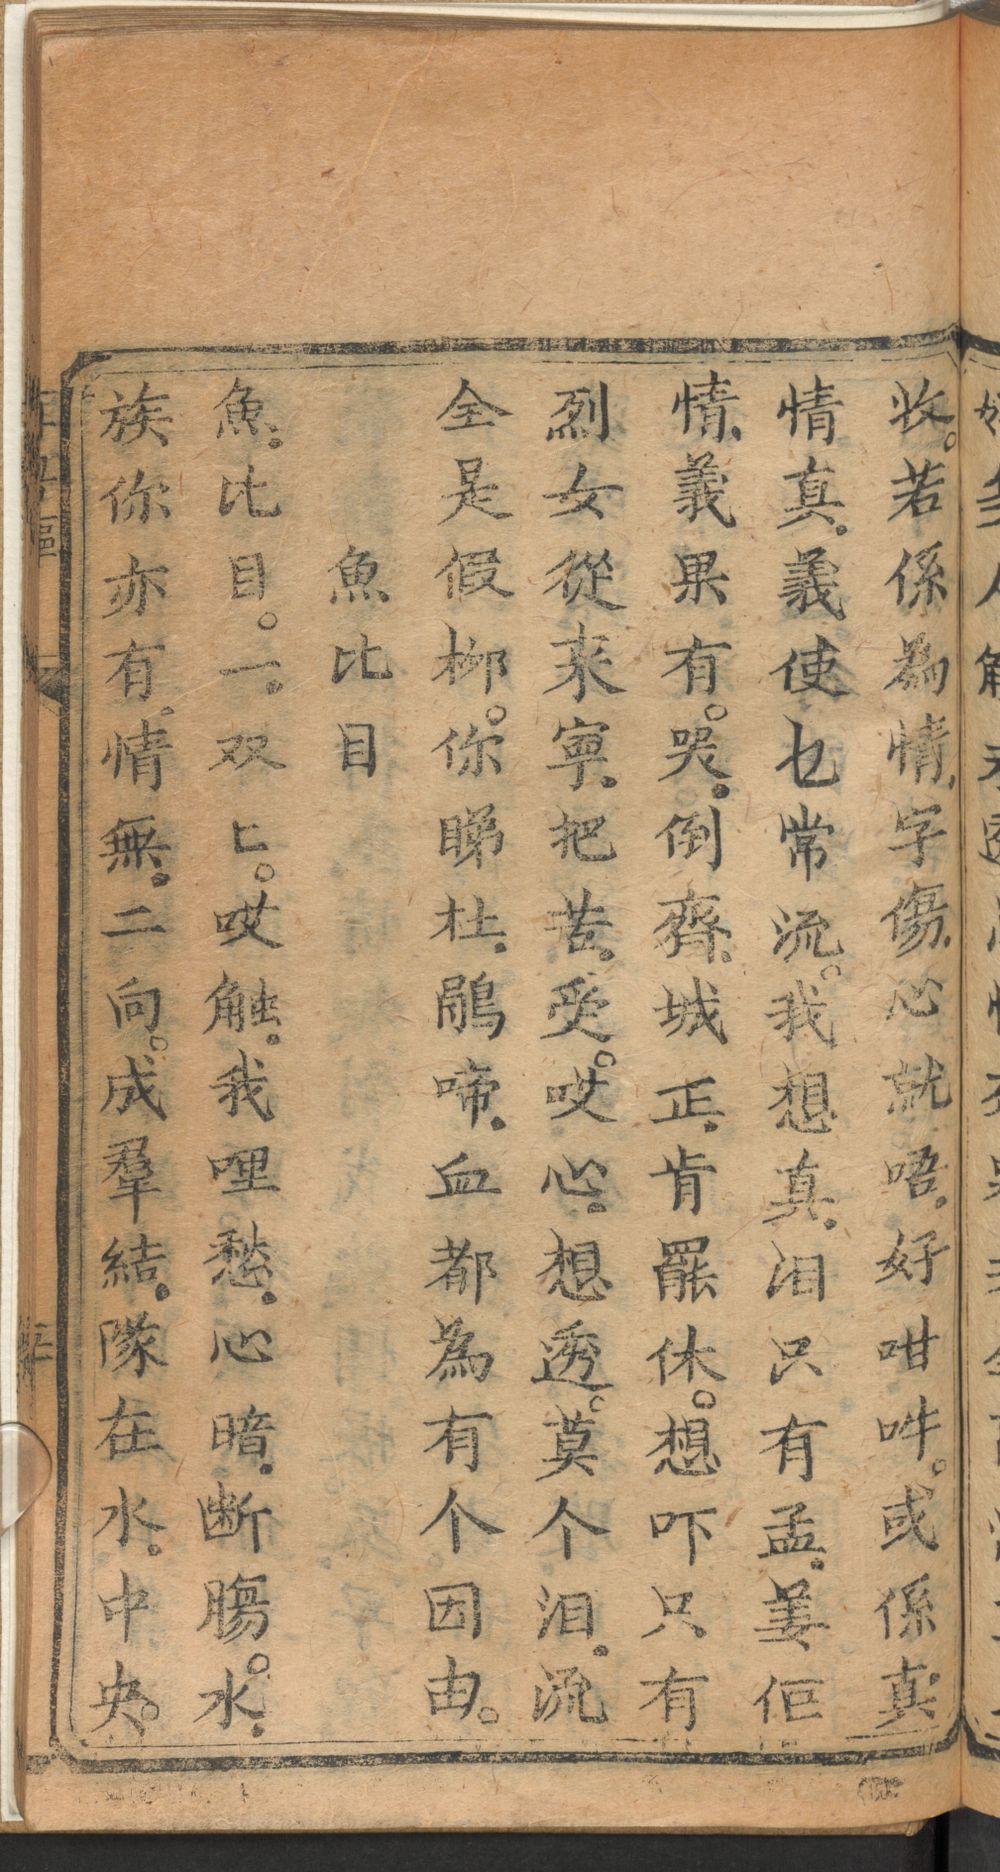 收。若係為情、字傷、心就唔、好咁吽。或係真、
情真、義使乜常流。我想真、泪只有孟、姜佢
情、義果有。哭、倒齊、城正、肯罷休。想吓只有
烈女從來寧、把苦、受。哎心、想透。莫个泪、流
全是假柳。你睇杜、鵑啼、血都為有个因由。
魚比目
魚、比目。一、双〻。哎触、我哩愁、心暗、断膓。水、
族、你亦有、情無、二向。成羣結、隊在水、中央。